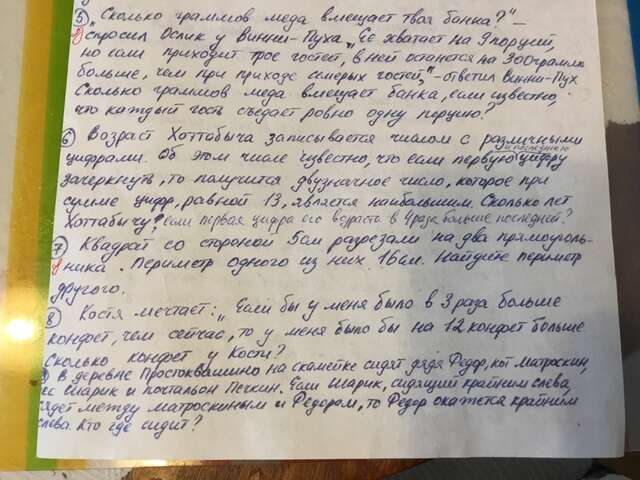 ⑤ „Сколько граммов меда вмещает твоя банка?" –
спросил Ослик у Винни-Пуха „Ее хватает на 9 порций,
но если приходит трое гостей, в ней останется на 300грамм
больше, чем при приходе семерых гостей," - ответил Винни-Пух
Сколько граммов меда вмещает банка, если известно,
что каждый гость съедает ровно одну порцию?
⑥ Возраст Хоттабыча записывается числом с различными
цифрами. Об этом числе известно, что если первую и последнюю цифру
зачеркнуть, то получится двузначное число, которое при
сумме цифр, равной 13, является наибольшим. Сколько лет
Хоттабычу? если первая цифра его возраста в 4 раза больше последней?
⑦ Квадрат со стороной 5см разрезали на два прямоуголь-
ника. Периметр одного из них 16см. Найдите периметр
другого.
⑧ Костя мечтает: „Если бы у меня было в 3 раза больше
конфет, чем сейчас, то у меня было бы на 12 конфет больше
Сколько конфет у Кости?
В деревне Простоквашино на скамейке сидят дядя Федор, кот Матроскин,
ес Шарик и почтальон Печкин. Если Шарик, сидящий крайним слева,
сядет между Матроскиным и Федором, то Федор окажется крайним
слева. Кто где сидит?